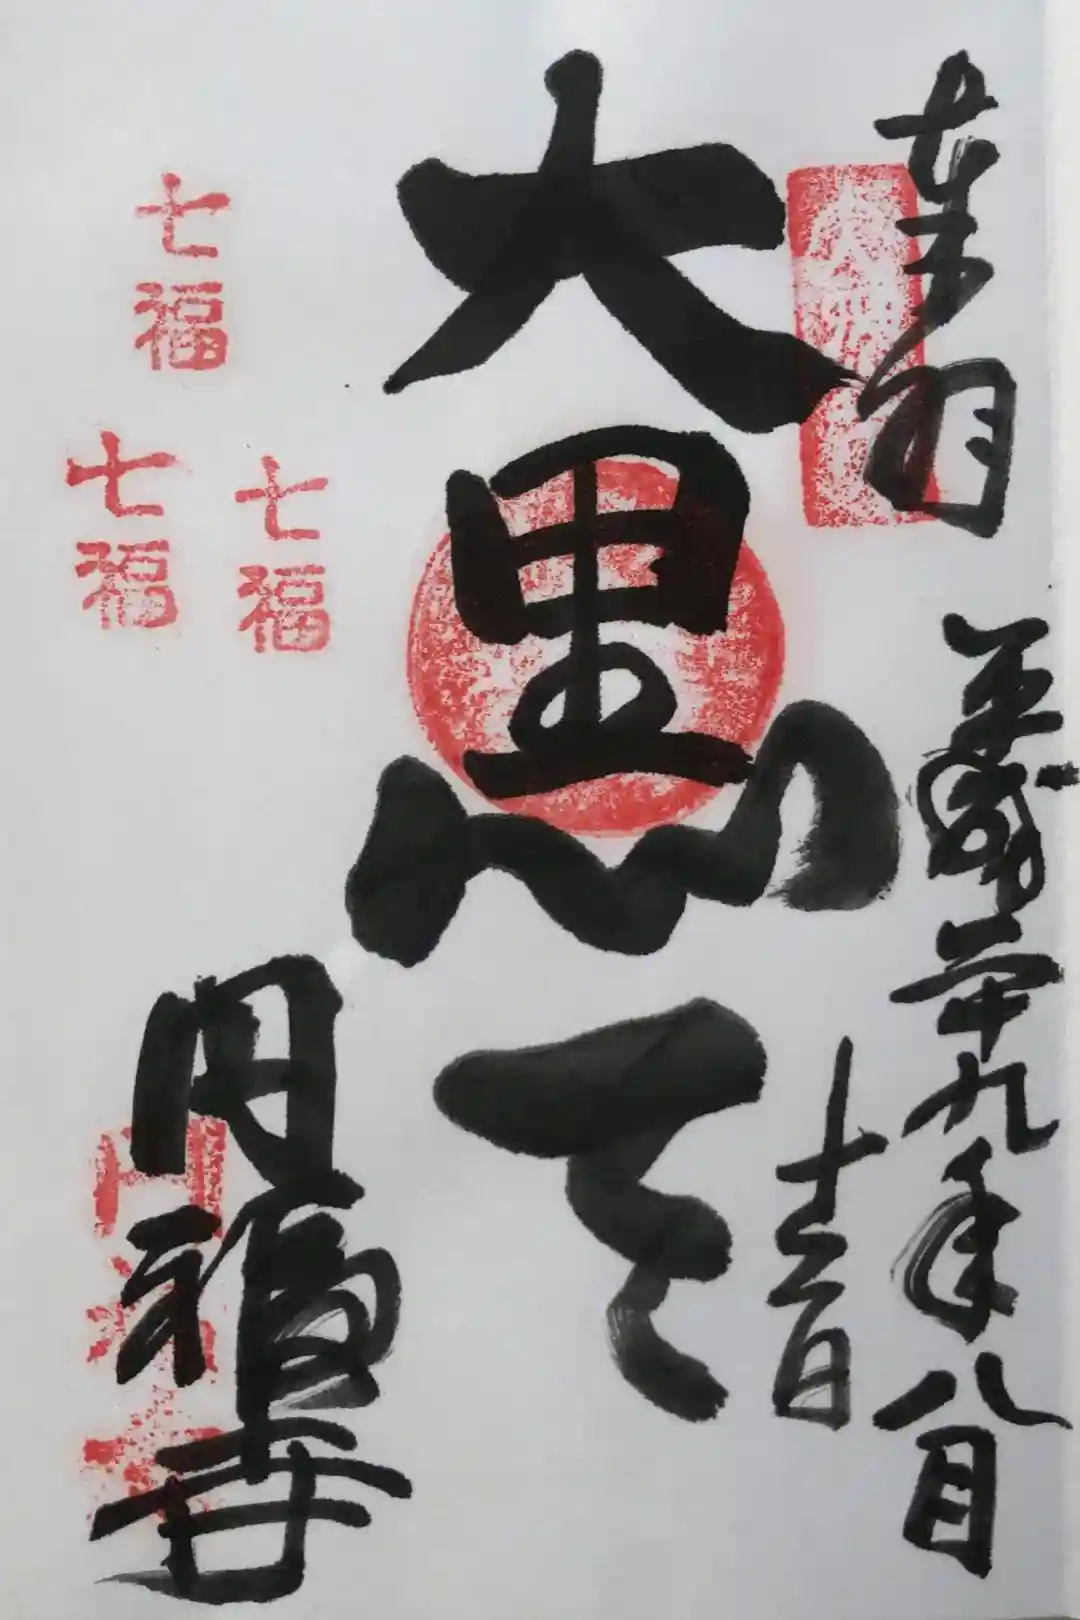 奉拝 平成廿九年八月
十二日
大黒天
七福
七福
七福
円福寺